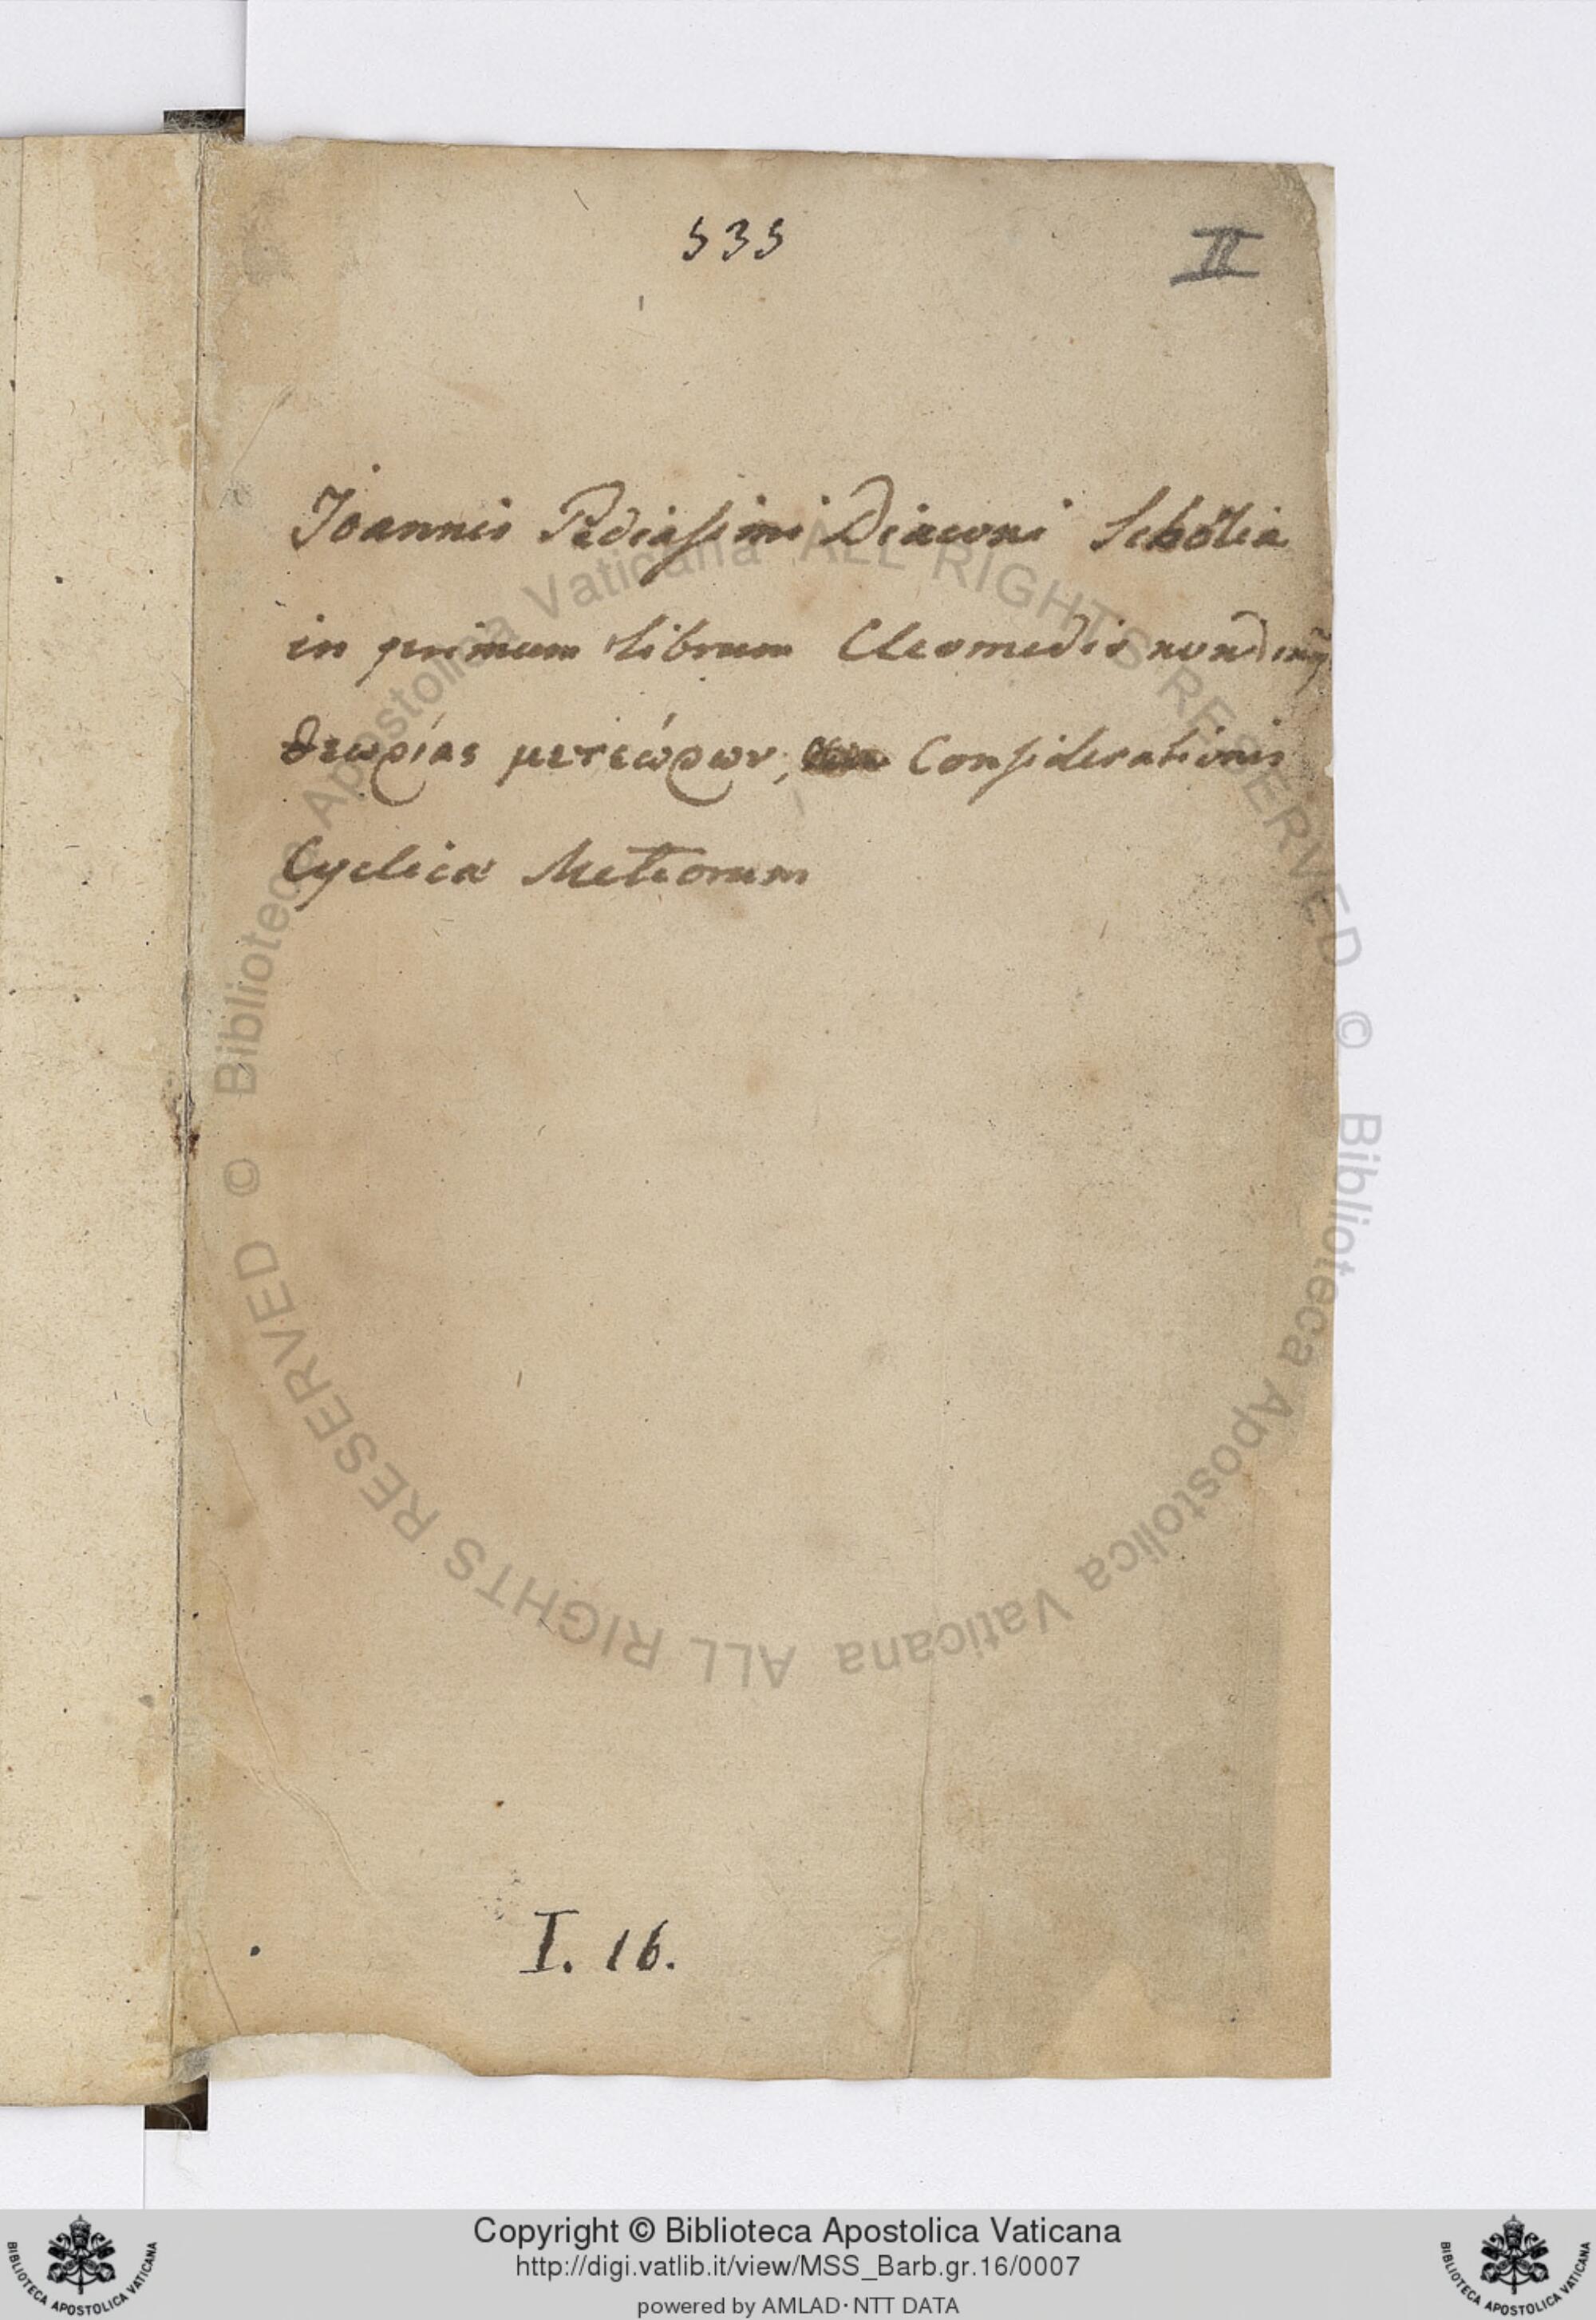 535
II
Joannis Pediasimi Diaconi Scholia
in primum librum Cleomedis
θεωρίας μετεώρων, Considerationis
Cyclicæ Meteorum
I. 16.
© Biblioteca Apostolica Vaticana ALL RIGHTS RESERVED
© Biblioteca Apostolica Vaticana ALL RIGHTS RESERVED
Copyright © Biblioteca Apostolica Vaticana
http://digi.vatlib.it/view/MSS_Barb.gr.16/0007
powered by AMLAD·NTT DATA
BIBLIOTECA APOSTOLICA VATICANA
BIBLIOTECA APOSTOLICA VATICANA